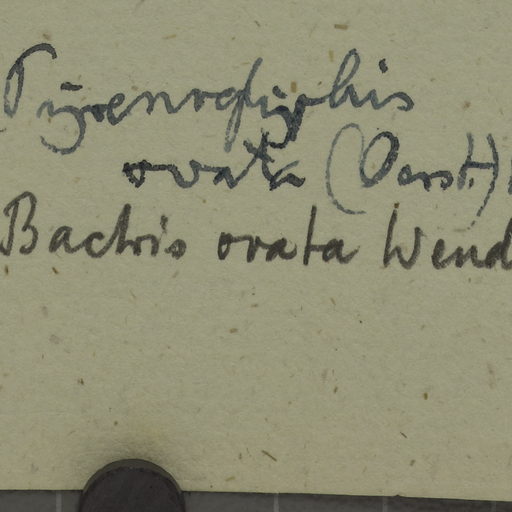 Pyrenoglyphis
ovata (Oerst.)
Bactris ovata Wend